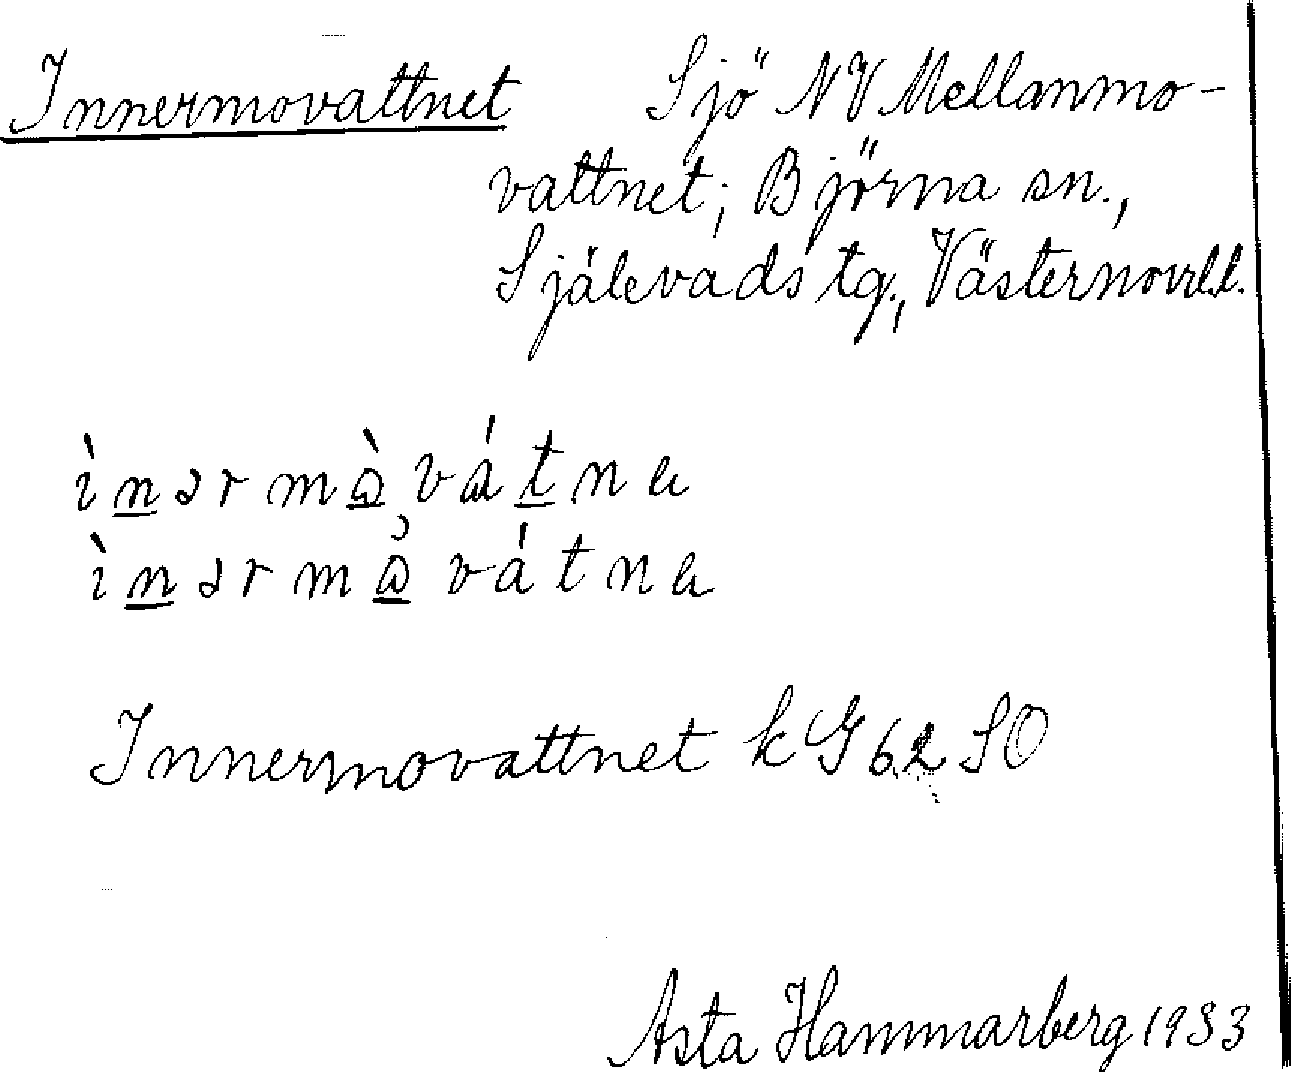 Innermovattnet Sjö NV Mellanmo-
vattnet; Björna sn.,
Själevads tg., Västernorrl.l.
ìnərmὰvátnα
ìnərmάvátnα
Innermovattnet kG 62 SO
Asta Hammarberg 1933